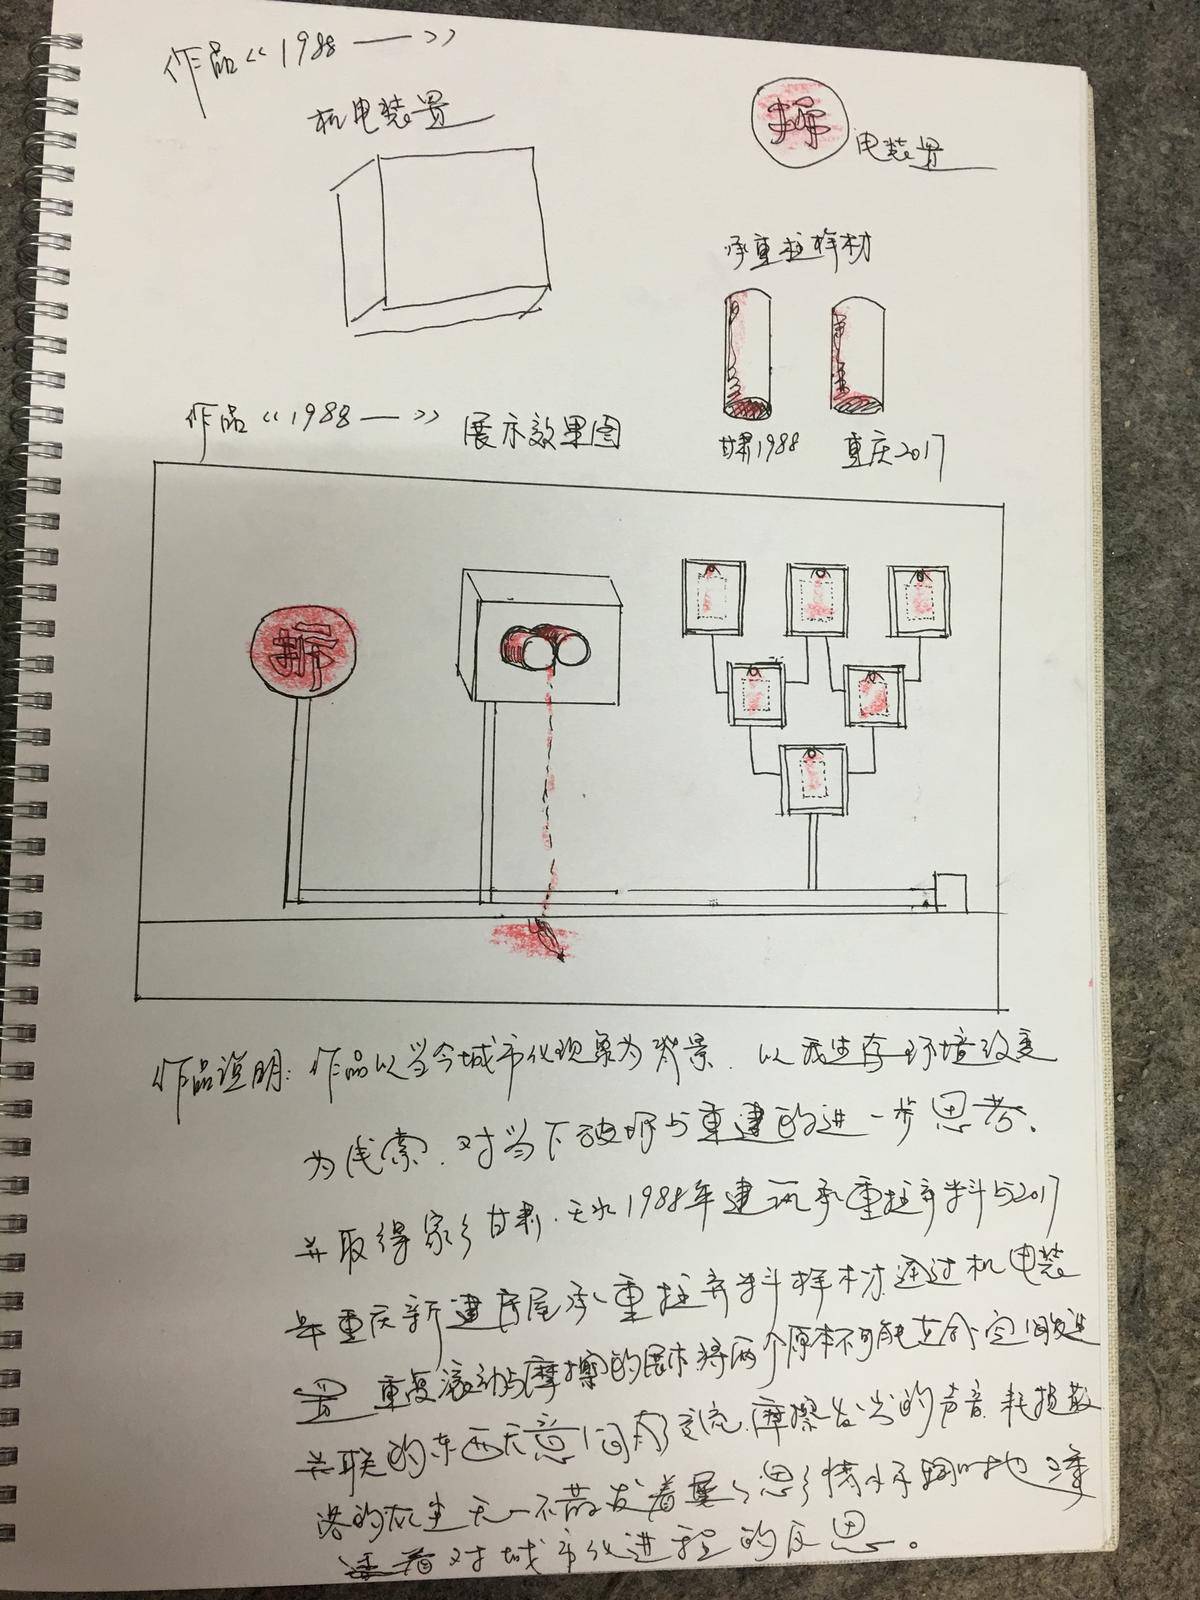 作品《1988——》
机电装置
拆
电装置
承重柱样材
甘肃1988
重庆2017
作品《1988—》展示效果图
拆
作品说明：作品以当今城市化现象为背景，以我生存环境改变
为线索，对当下破坏与重建的进一步思考，
并取得家乡甘肃·天水1988年建筑承重柱弃料与2017
年重庆新建房屋承重柱弃料样材，通过机电装
置 重复滚动与摩擦的展示将两个原本不可能在同空间
关联的东西无意间有了交流，摩擦发出的声音、耗损散
落的灰尘无一不散发着 思乡情 同时也
着对城市化进程的反思。